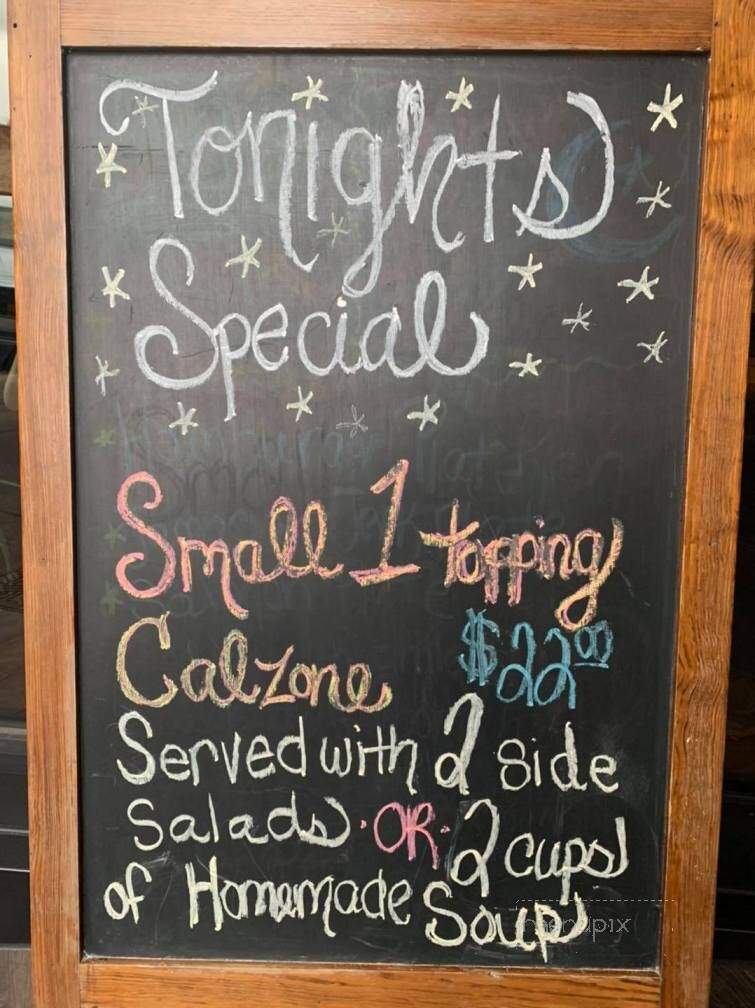 Tonights
Special
Small 1 topping
Calzone $22.00
Served with 2 side
Salads · OR · 2 cups
of Homemade Soup
menupix